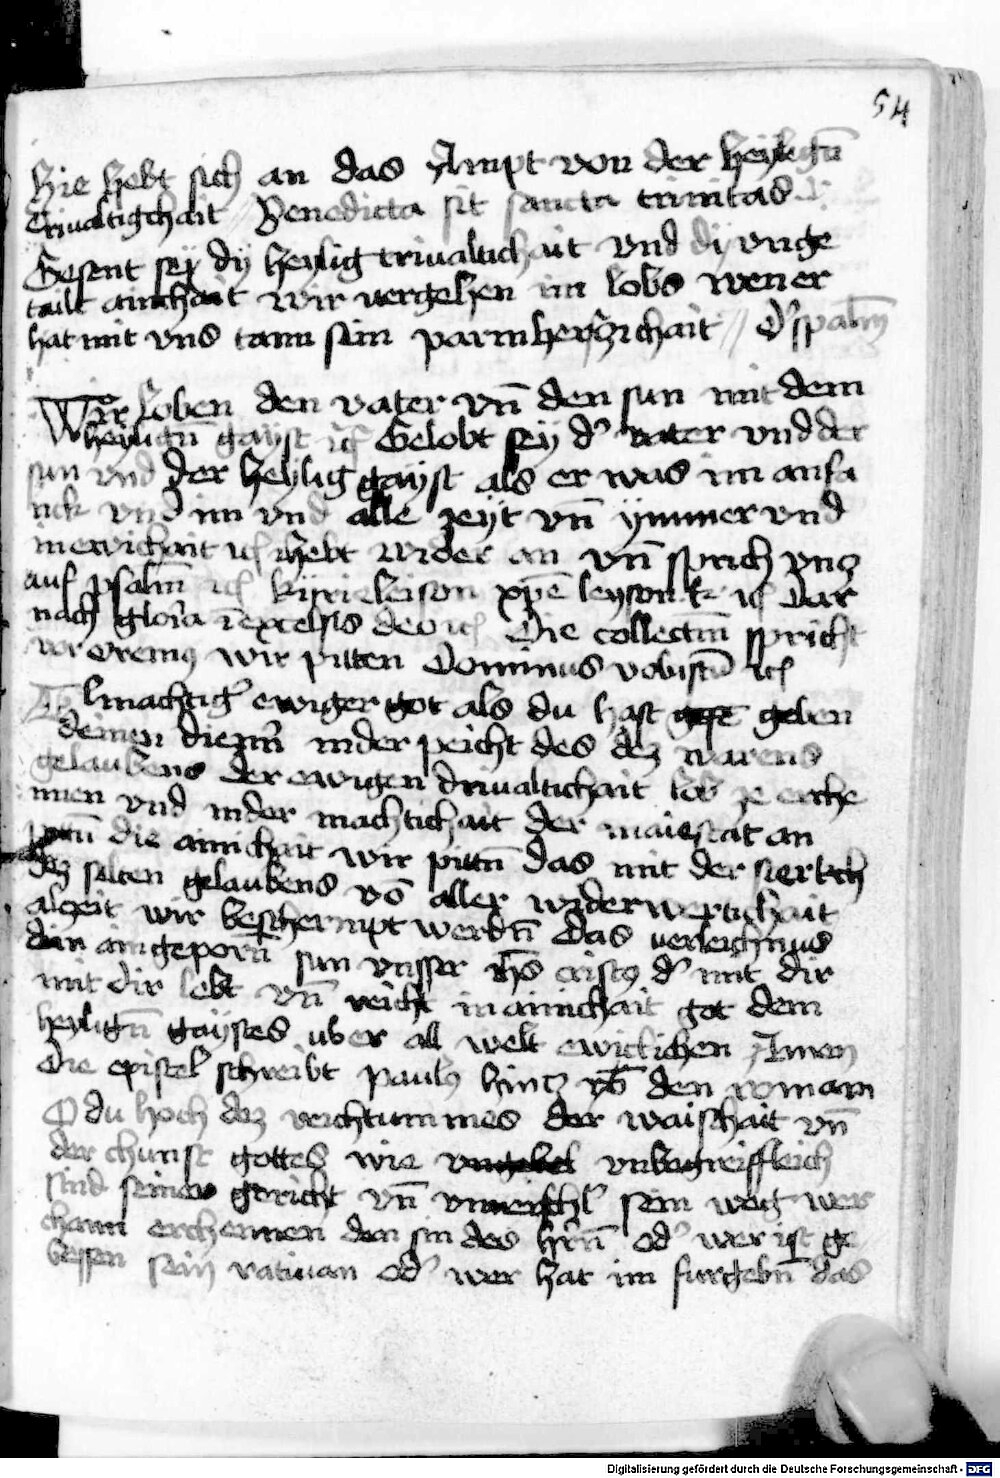 54
Hie hebt sich an das Ampt von der heylign̄
Trivaltigchait Benedicta sit sancta trinitas
Gesent sey dy heylig trivaltichait vnd dy vnge
tailt ainchait wir vergehen im lobs wen er
hat mit vns tann sein parmherczichait // Dˢ spalm̄
Wir loben den vater vn̄ den sun mit dem
heylign̄ gayst ic̄ Gelobt sey dˢ vater vnd der
sun vnd der heylig gayst als er was im anfa
nck vnd im vnd alle zeyt vn̄ ymmer vnd
inewichait ic̄ hebt wider an vn̄ sprich vncz
auf psalm̄ ic̄ kyrieleison xpē leyson k ic̄ Dar
nach glor̄ia ī excelsis deo ic̄ Die collectm̄ spricht
vor oremꝰ wir pitten Dominus vobiscū ic̄
Almachtigˢ ewiger got als du hast geben
deinen dienn̄ inder peicht des dez warens
gelaubens der ewigen drivaltichait lob ze erche
nnen vnd inder machtichait der maiestat an
pettn̄ die ainichait wir pittn̄ das mit der sterkch
dez selben gelaubens vō aller widerwertichait
alczeit wir beschermpt werdn̄ Das verleich vns
dein aingeporn̄ sun vnsser ih̄s cristꝰ dˢ mit dir
mit dir lebt vn̄ reicht in ainichait got dem
heylign̄ gaystes uber all welt ewiclichen Amen
Die epistel schreibt paulꝰ hincz den romarn
O du hoch dez reichtummes der waishait vn̄
der chunst gottes wie vnbegreiffleich
sind seinew gericht vn̄ sein weg wer
chann erchennen den sin des hr̄n̄ odˢ wer ist ge
bessen sein ratman odˢ wer hat im furgebn̄ das
Digitalisierung gefördert durch die Deutsche Forschungsgemeinschaft - DFG